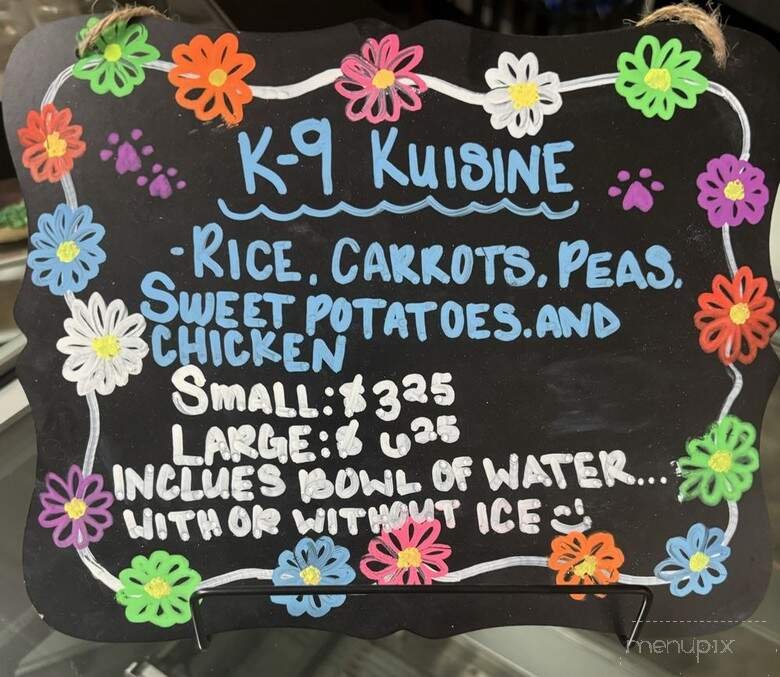 K-9 KUISINE
-RICE, CARROTS, PEAS,
SWEET POTATOES. AND
CHICKEN
SMALL: $3 25
LARGE: $ 6 25
INCLUES BOWL OF WATER...
WITH OR WITHOUT ICE :)
menupix